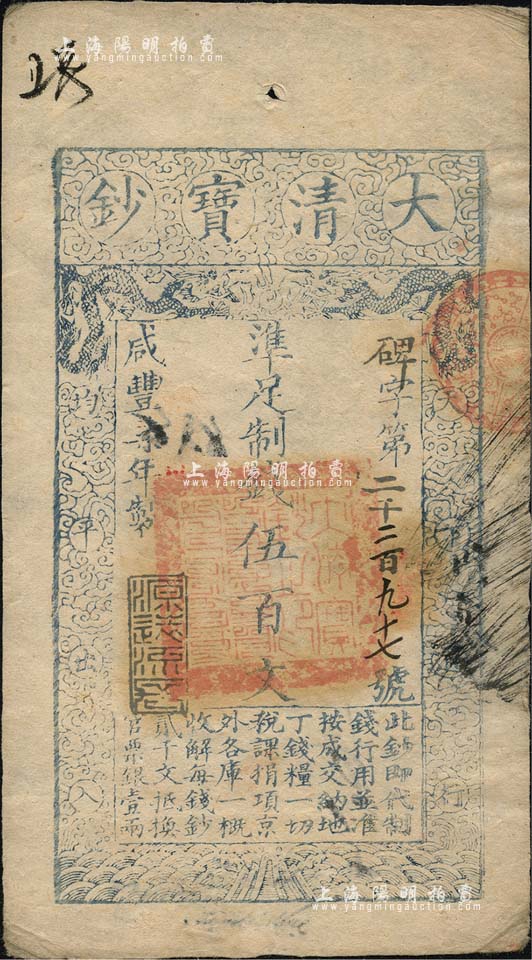 上海陽明拍賣
www.yangmingauction.com
大清寶鈔
碑字第二千二百九十七號
準足制錢伍百文
咸豐年製
上海陽明拍賣
www.yangmingauction.com
天下通行
均平出入
此鈔即代制
錢行用並准
按成交納地
丁錢糧一切
稅課捐項京
外各庫一概
收解每錢鈔
貳千文抵換
官票銀壹兩
上海陽明拍賣
www.yangmingauction.com